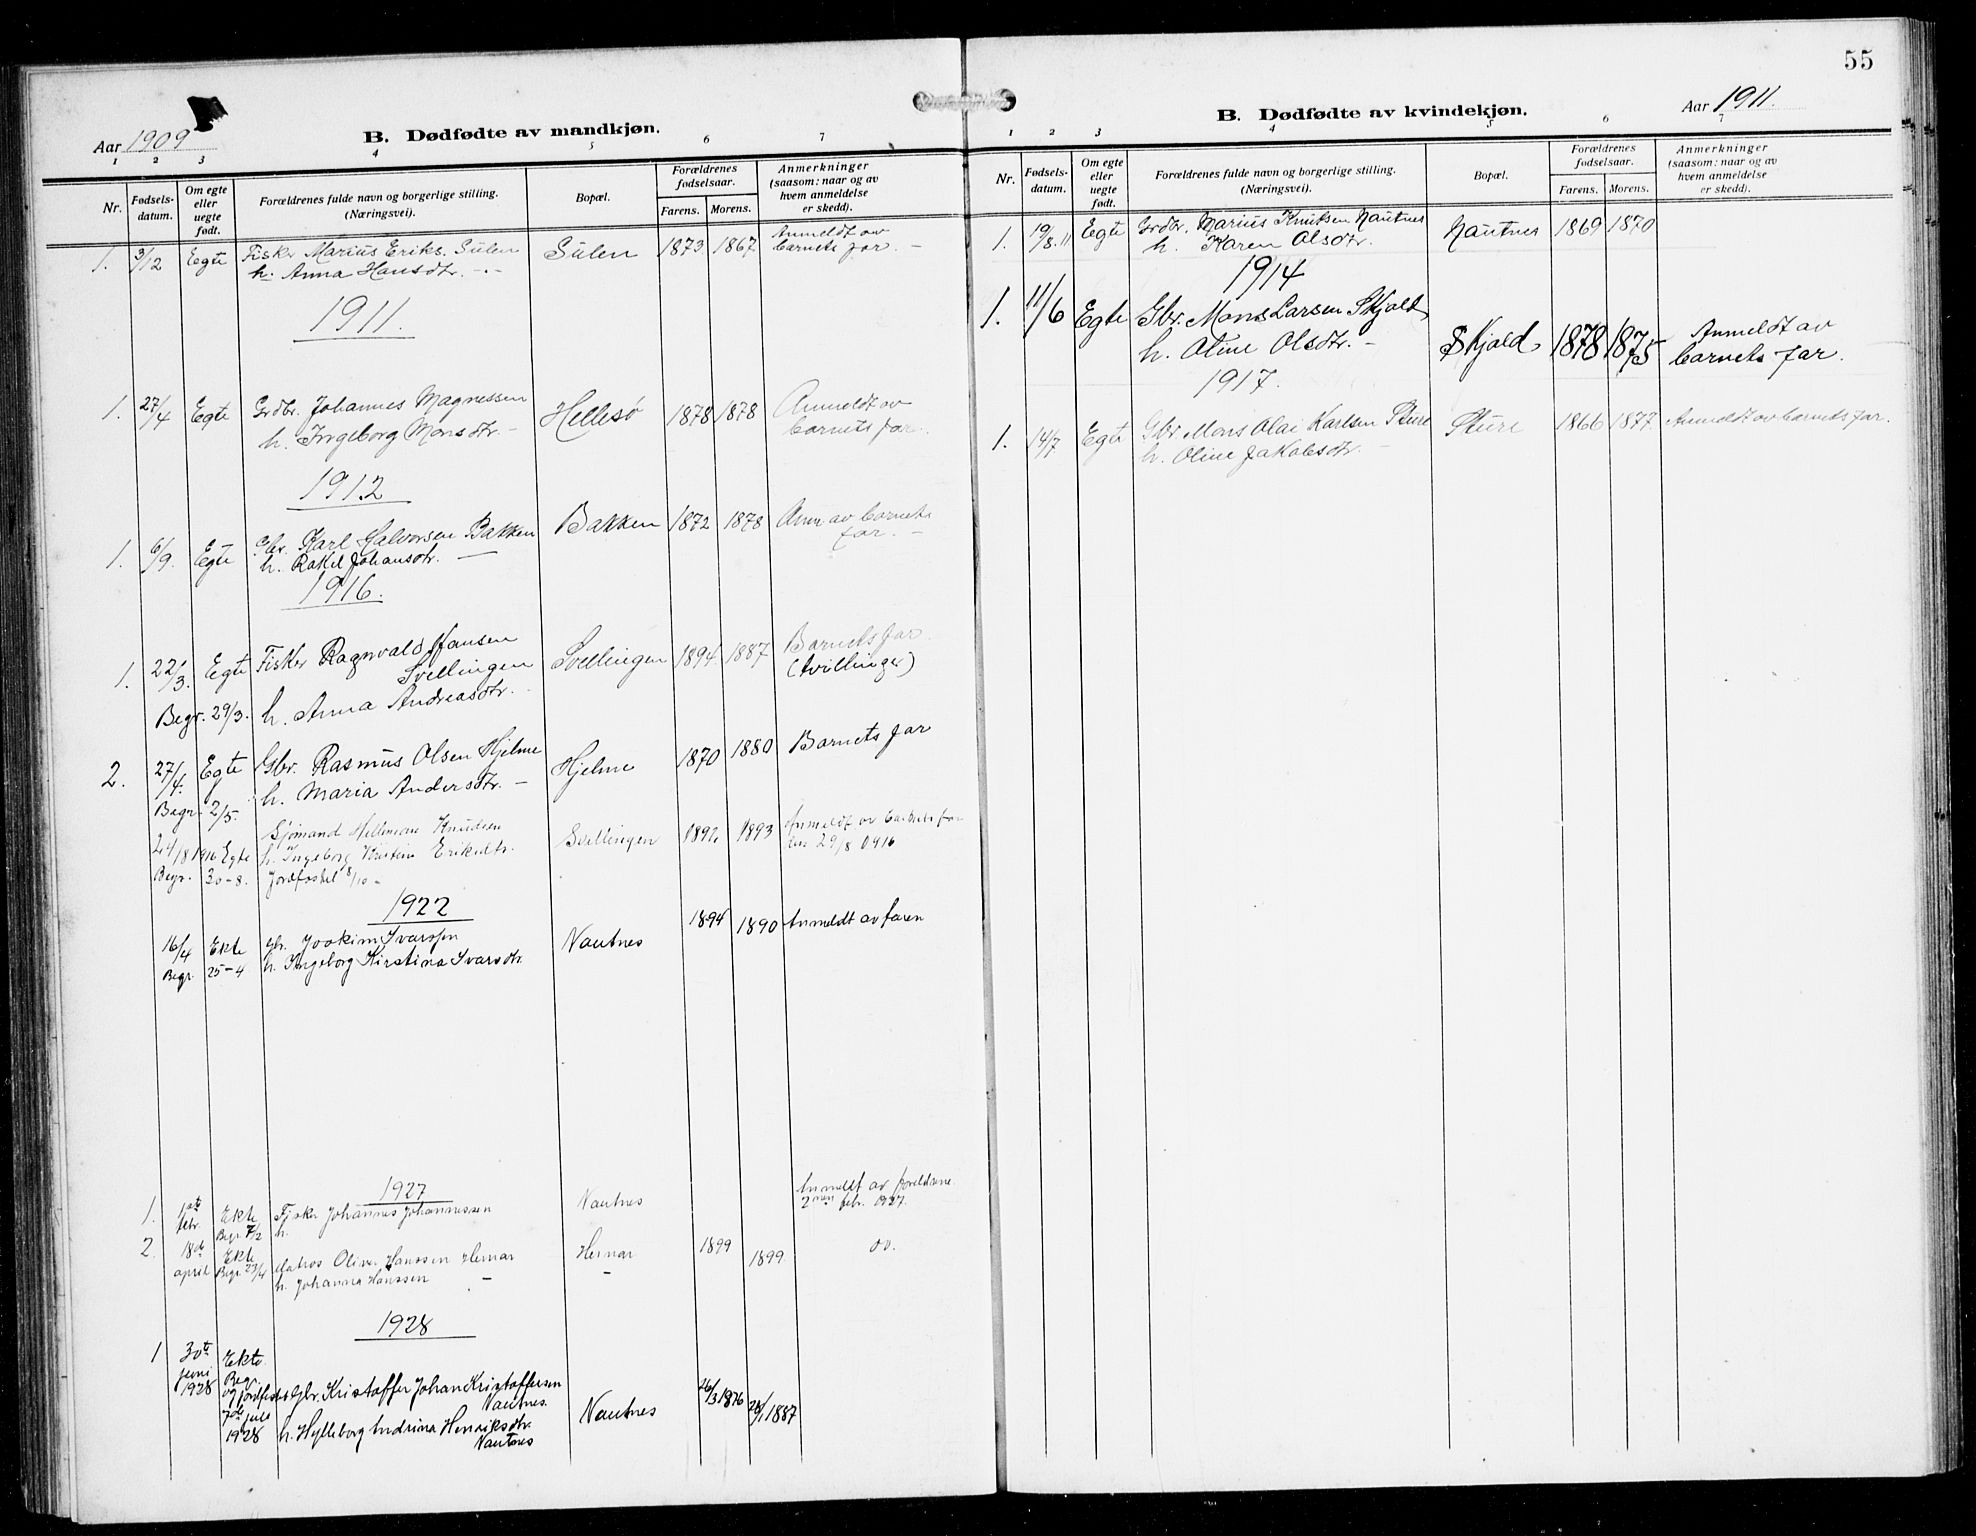 Aar 1909
B. Dødfødte av mandkjøn.
1 2 3 4 5 6 7
Nr.
Fødsels-
datum.
Om egte
eller
uegte
født.
Forældrenes fulde navn og borgerlige stilling.
(Næringsvei).
Bopæl.
Forældrenes
fødselsaar.
Farens. Morens.
Anmerkninger
(saasom: naar og av
hvem anmeldelse
er skedd).
1. 3/12 Egte Fisker Marius Eriks. Sulen Sulen 1873. 1867. Anmeldt av
h. Anna Hansdtr. barnets far. -
1911.
1. 27/4 Egte Grdbr. Johannes Magnessen Hellesø 1878 1878 Anmeldt av
h. Ingeborg Monsdtr. - barnets far.
1912
1. 6/9. Egte Gbr. Karl Halvorsen Bakken Bakken 1872 1878 Anm av barnets
h. Rakel Johansdtr. - far. -
1916.
1. 22/3. Egte Fisker Ragnvald Hansen Svellingen 1894. 1887 Barnets far.
Svellingen (tvillinger)
Begr. 29/3. h. Anna Andreasdtr.
2. 27/4. Egte Gbr. Rasmus Olsen Hjelme Hjelme 1870 1880 Barnets far
h. Maria Andersdtr. -
Begr. 2/5.
Sjømand Knudsen Svellingen 1893 Anmeldt av barnets far
24/8 1916 Egte h. Ingeborg Kristine Eriksdtr. 29/8 1916
Begr. 30-8. Jordfestet 8/10 -
1922
16/4 Ekte gbr. Joakim Ivarssen Nautnes 1894 1890 Anmeldt av faren
Begr. 25-4 h. Ingeborg Kirstina Ivarsdtr.
1927
1. 1ste Ekte Fisker Johannes Johannessen Nautnes Anmeldt av foreldrene
febr. Begr. 7/2 h. 2nen febr. 1927.
2. 18de Ekte Matros Oliver Hanssen Hernar Hernar 1899 1899 do.
april Begr. 23/4 h. Johanna Hanssen - -
1928
1 30te Ekte
juni Begr.
1928 og jordfestet Gbr. Kristoffer Johan Kristoffersen
Nautnes. Nautnes 26/3 1876 1887
7de juli
1928 h. Hylleborg Indrina Henriksdtr.
Nautnes
55
Aar 1911.
B. Dødfødte av kvindekjøn.
1 2 3 4 5 6 7
Nr.
Fødsels-
datum.
Om egte
eller
uegte
født.
Forældrenes fulde navn og borgerlige stilling.
(Næringsvei).
Bopæl.
Forældrenes
fødselsaar.
Farens. Morens.
Anmerkninger
(saasom: naar og av
hvem anmeldelse
er skedd).
1. 19/8. 11 Egte Grdbr. Marius Knutsen Nautnes Nautnes 1869 1870
h. Karen Olsdtr.
1914
1. 11/6 Egte Gbr. Mons Larsen Skjold
h. Oline Olsdtr. - Skjold 1878 1875 Anmeldt av
barnets far.
1917.
1. 14/7 Egte Gbr. Mons Olai Karlsen Sture Sture 1866 1877. Anmeldt av barnets far.
h. Oline Jakobsdtr. -